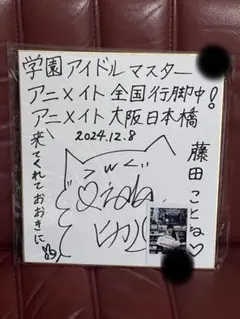 学園アイドルマスター
アニメイト全国行脚中!
アニメイト大阪日本橋
2024.12.8
来てくれておおきに
藤田ことね♡